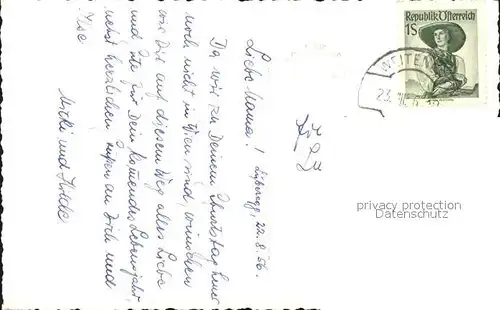 Liebe Mama!
22.8.56.
Da wir zu Deinem Geburtstag heuer
noch nicht in Wien sind, wünschen
wir Dir auf diesem Weg alles Liebe
und Gute für Dein kommendes Lebensjahr,
nebst herzlichen Grüßen an Dich und
Ilse
Micki und Hilde
Republik Österreich
1S
WEITEN
23.
privacy protection
Datenschutz